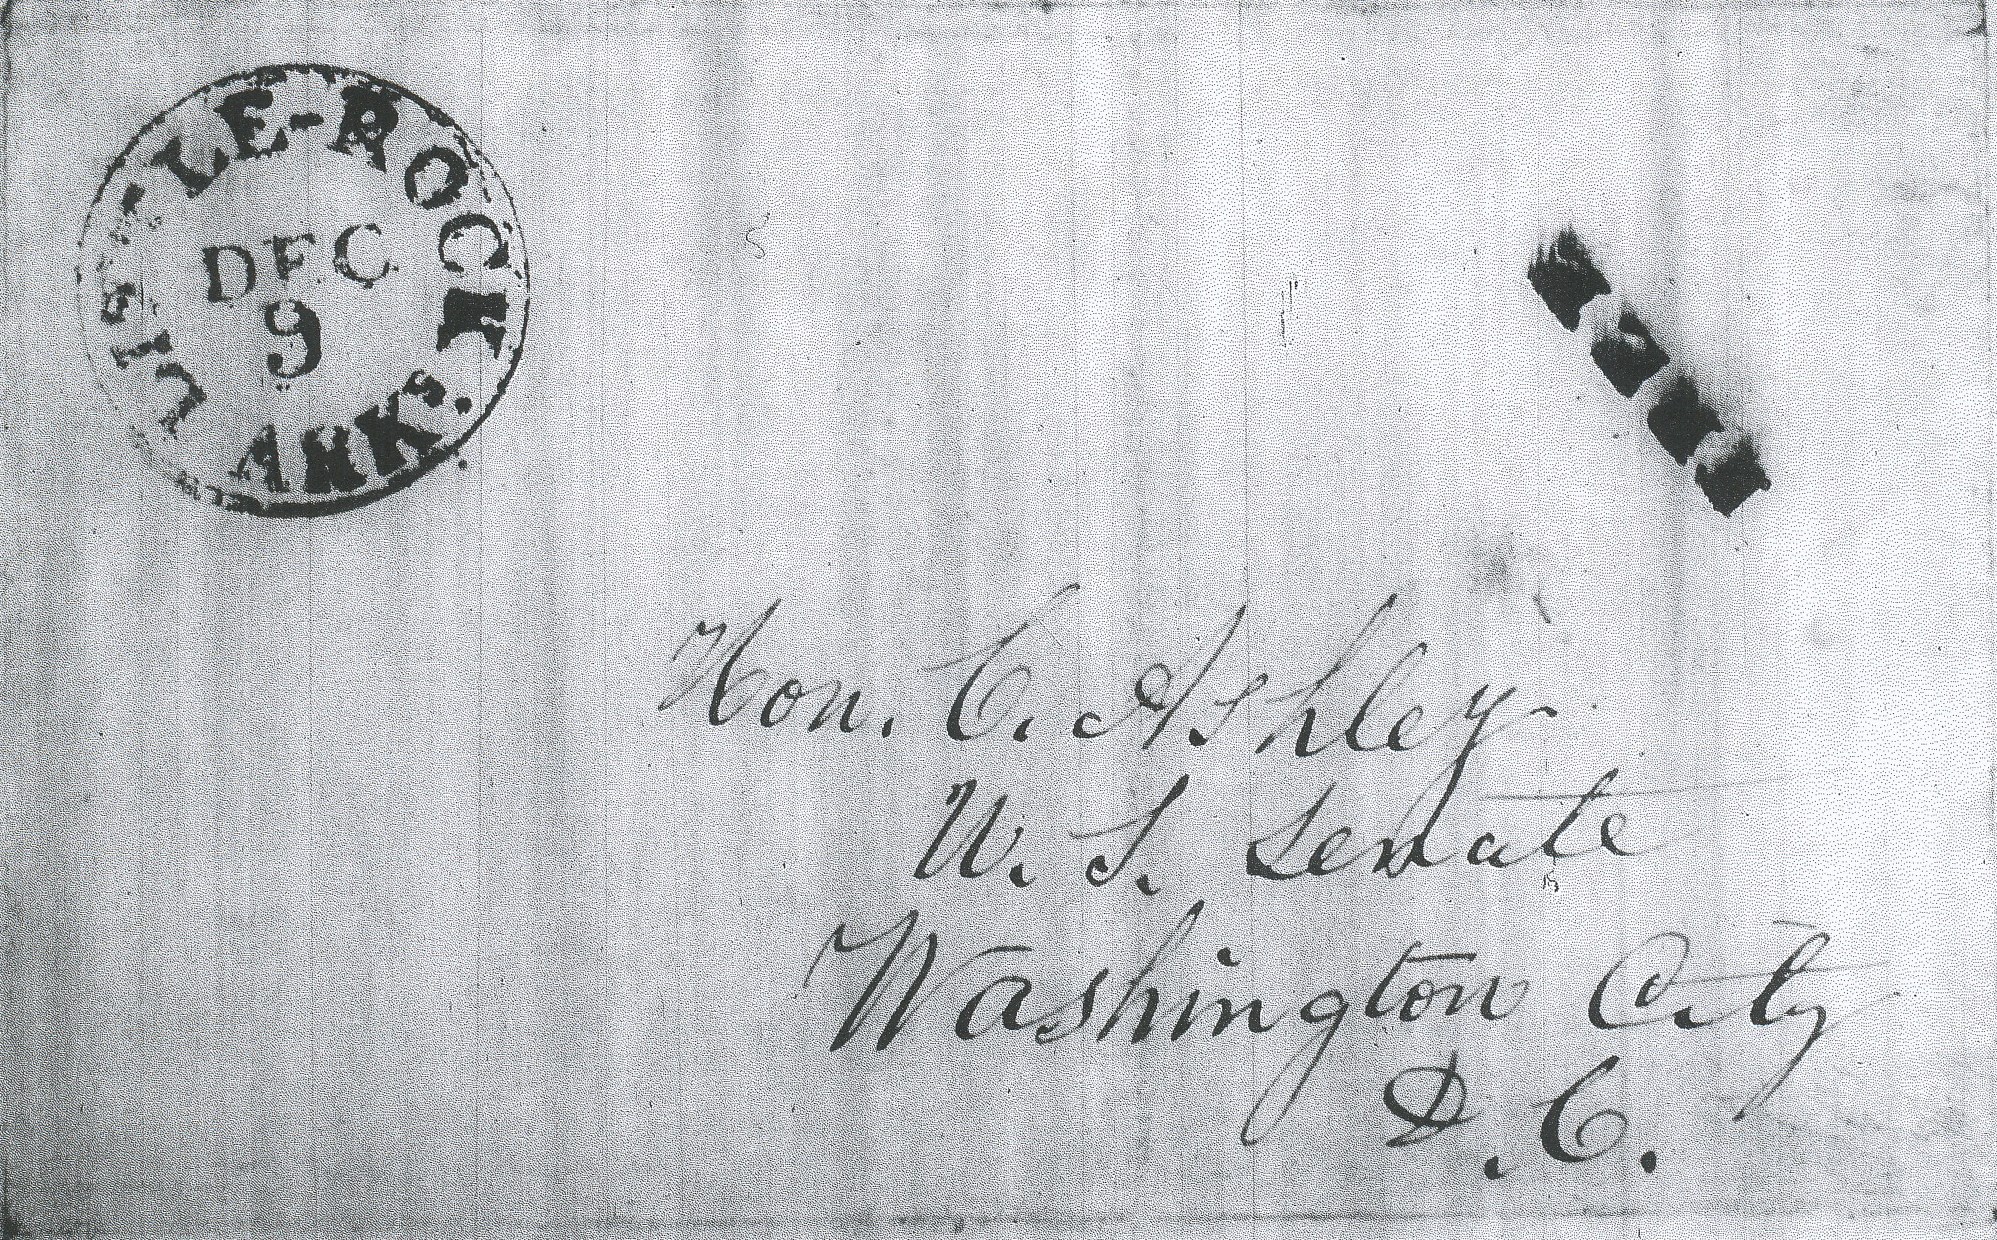 LITTLE-ROCK
ARKS.
DEC
9
Hon. C. Ashley
U. S. Senate
Washington City
D. C.